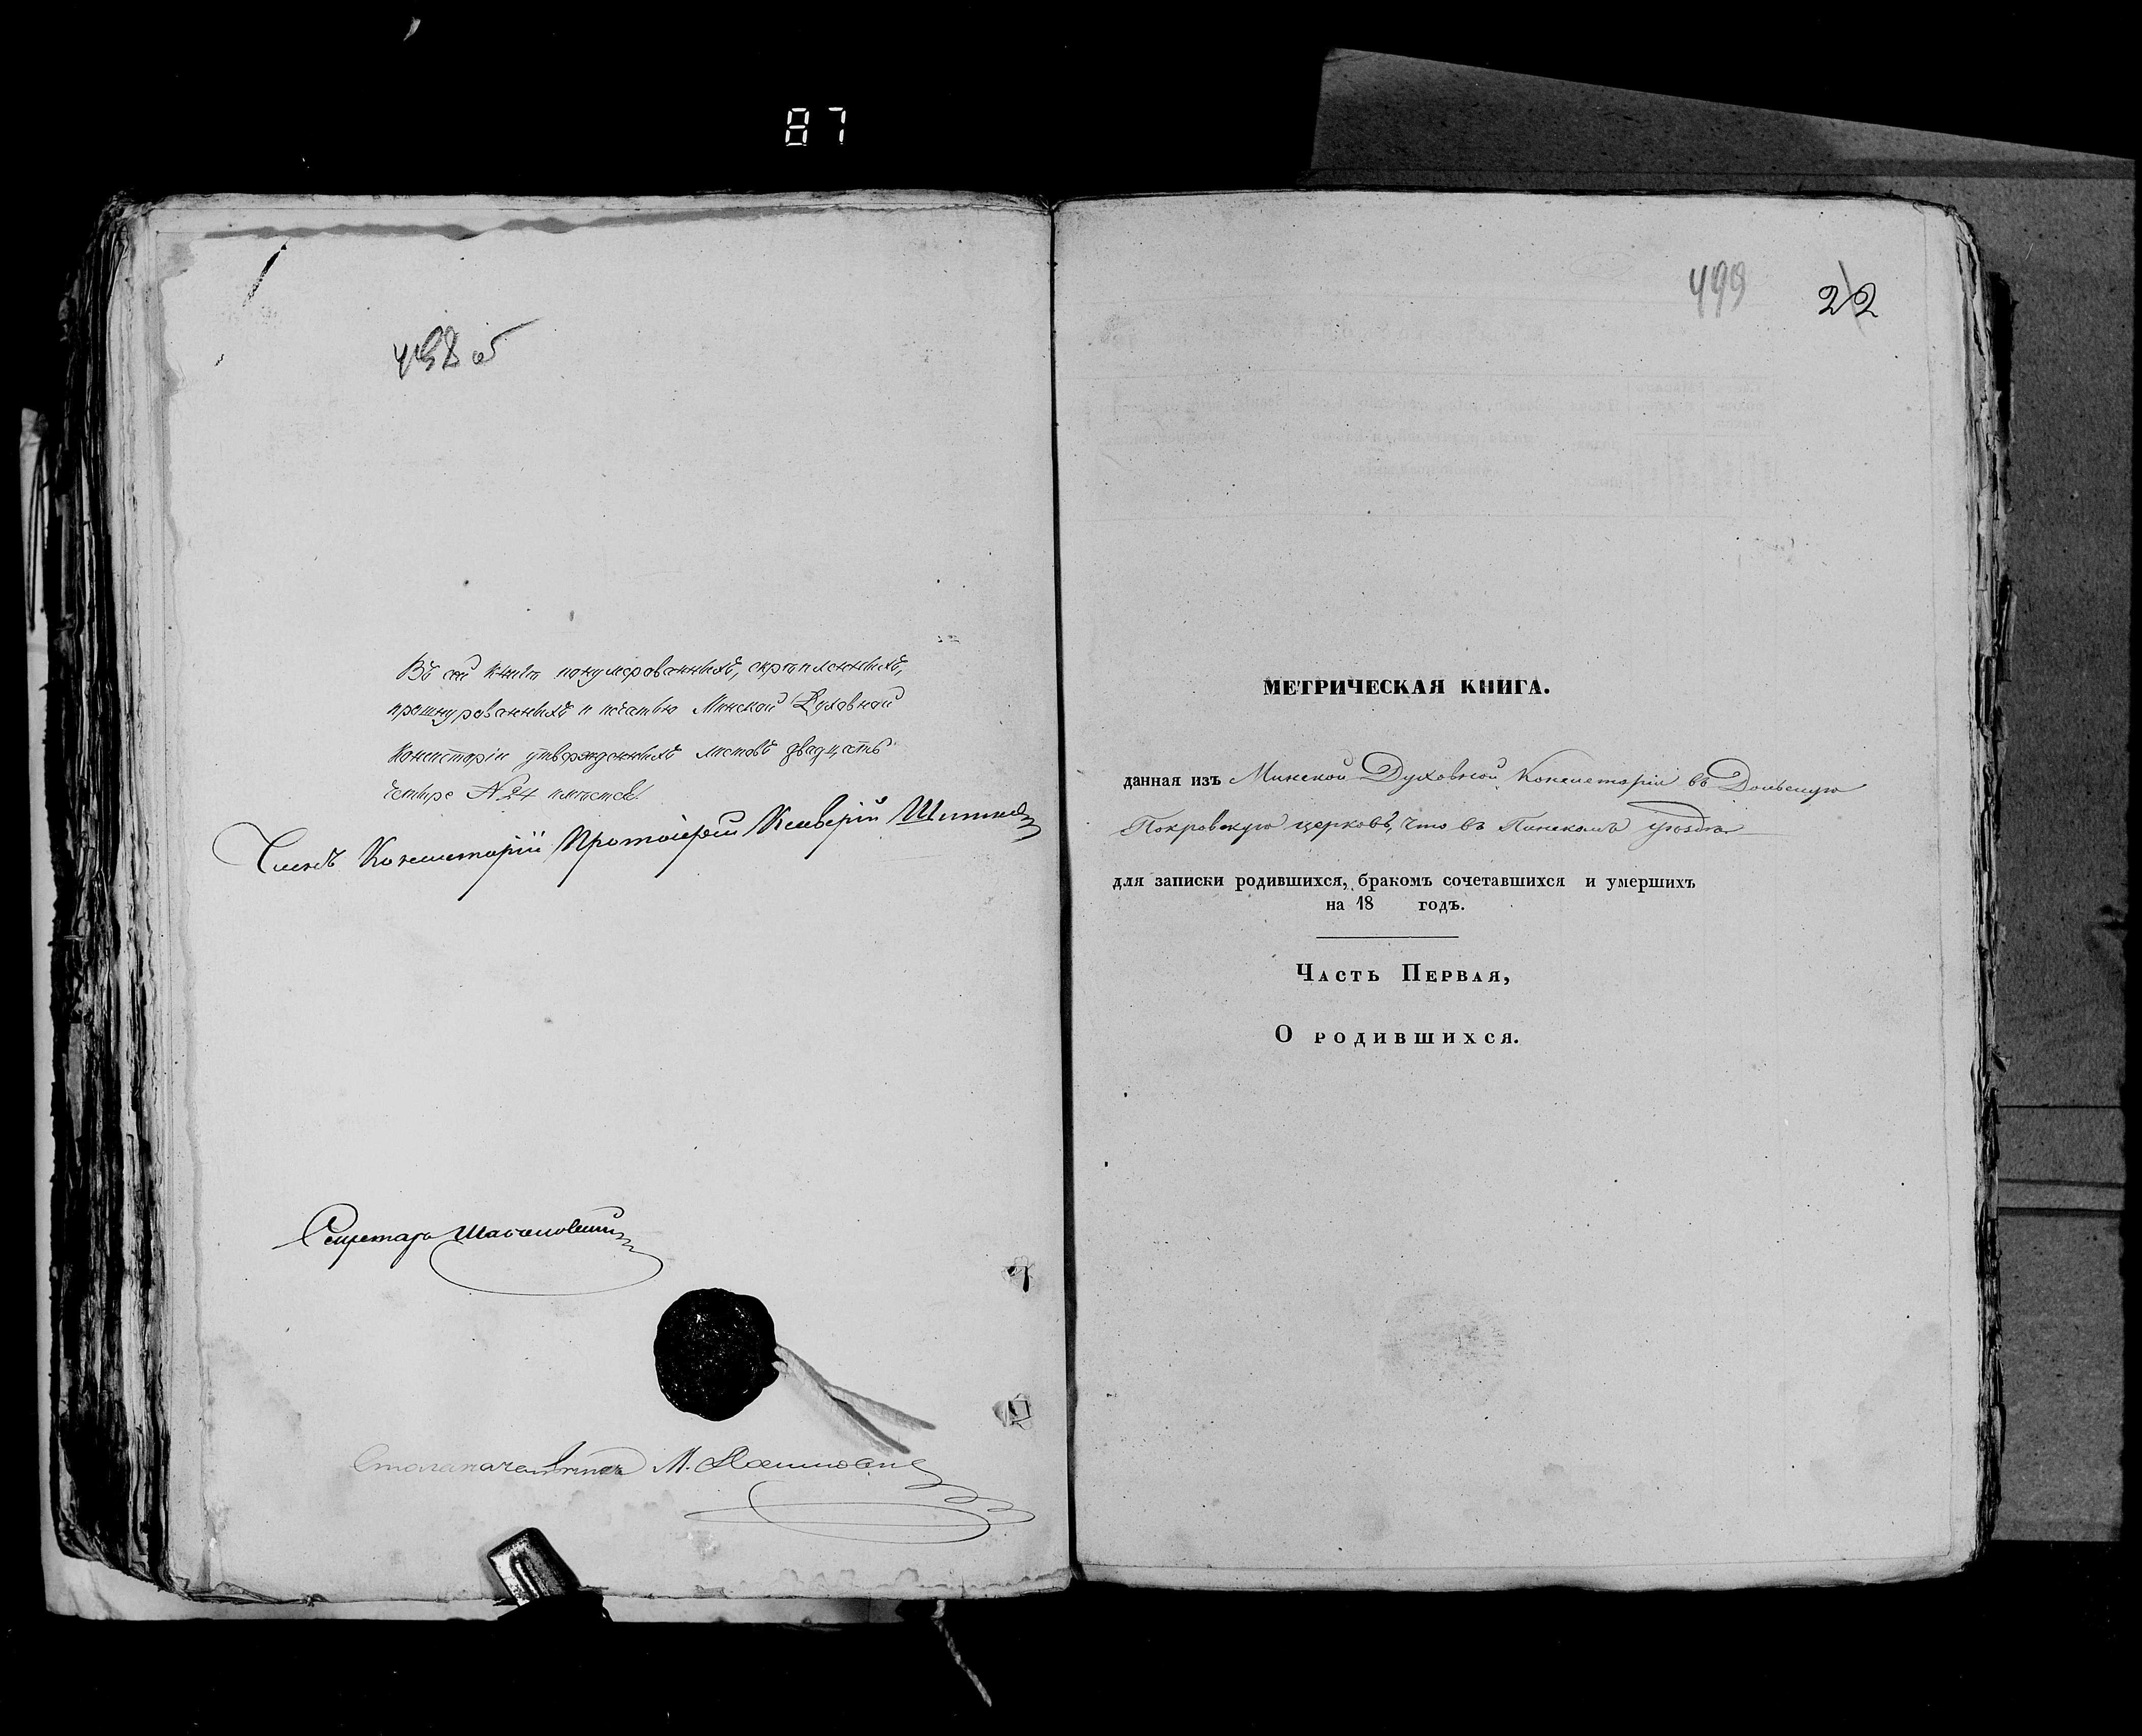 87
498 об
Въ сей книгѣ нонумерованныхъ, скрѣпленныхъ,
прошнурованныхъ и печатью Минской Духовной
Консисторіи утвержденныхъ листовъ двадцать
четыре № 24
Членъ Консисторіи Протоіерей Ксаверій
Секретарь
Столоначальникъ М.
499 22
МЕТРИЧЕСКАЯ КНИГА.
данная изъ Минской Духовной Консисторіи въ
Покровскую церковь, что въ Пинскомъ уѣздѣ
для записки родившихся, бракомъ сочетавшихся и умершихъ
на 18 годъ.
Часть Первая,
О родившихся.